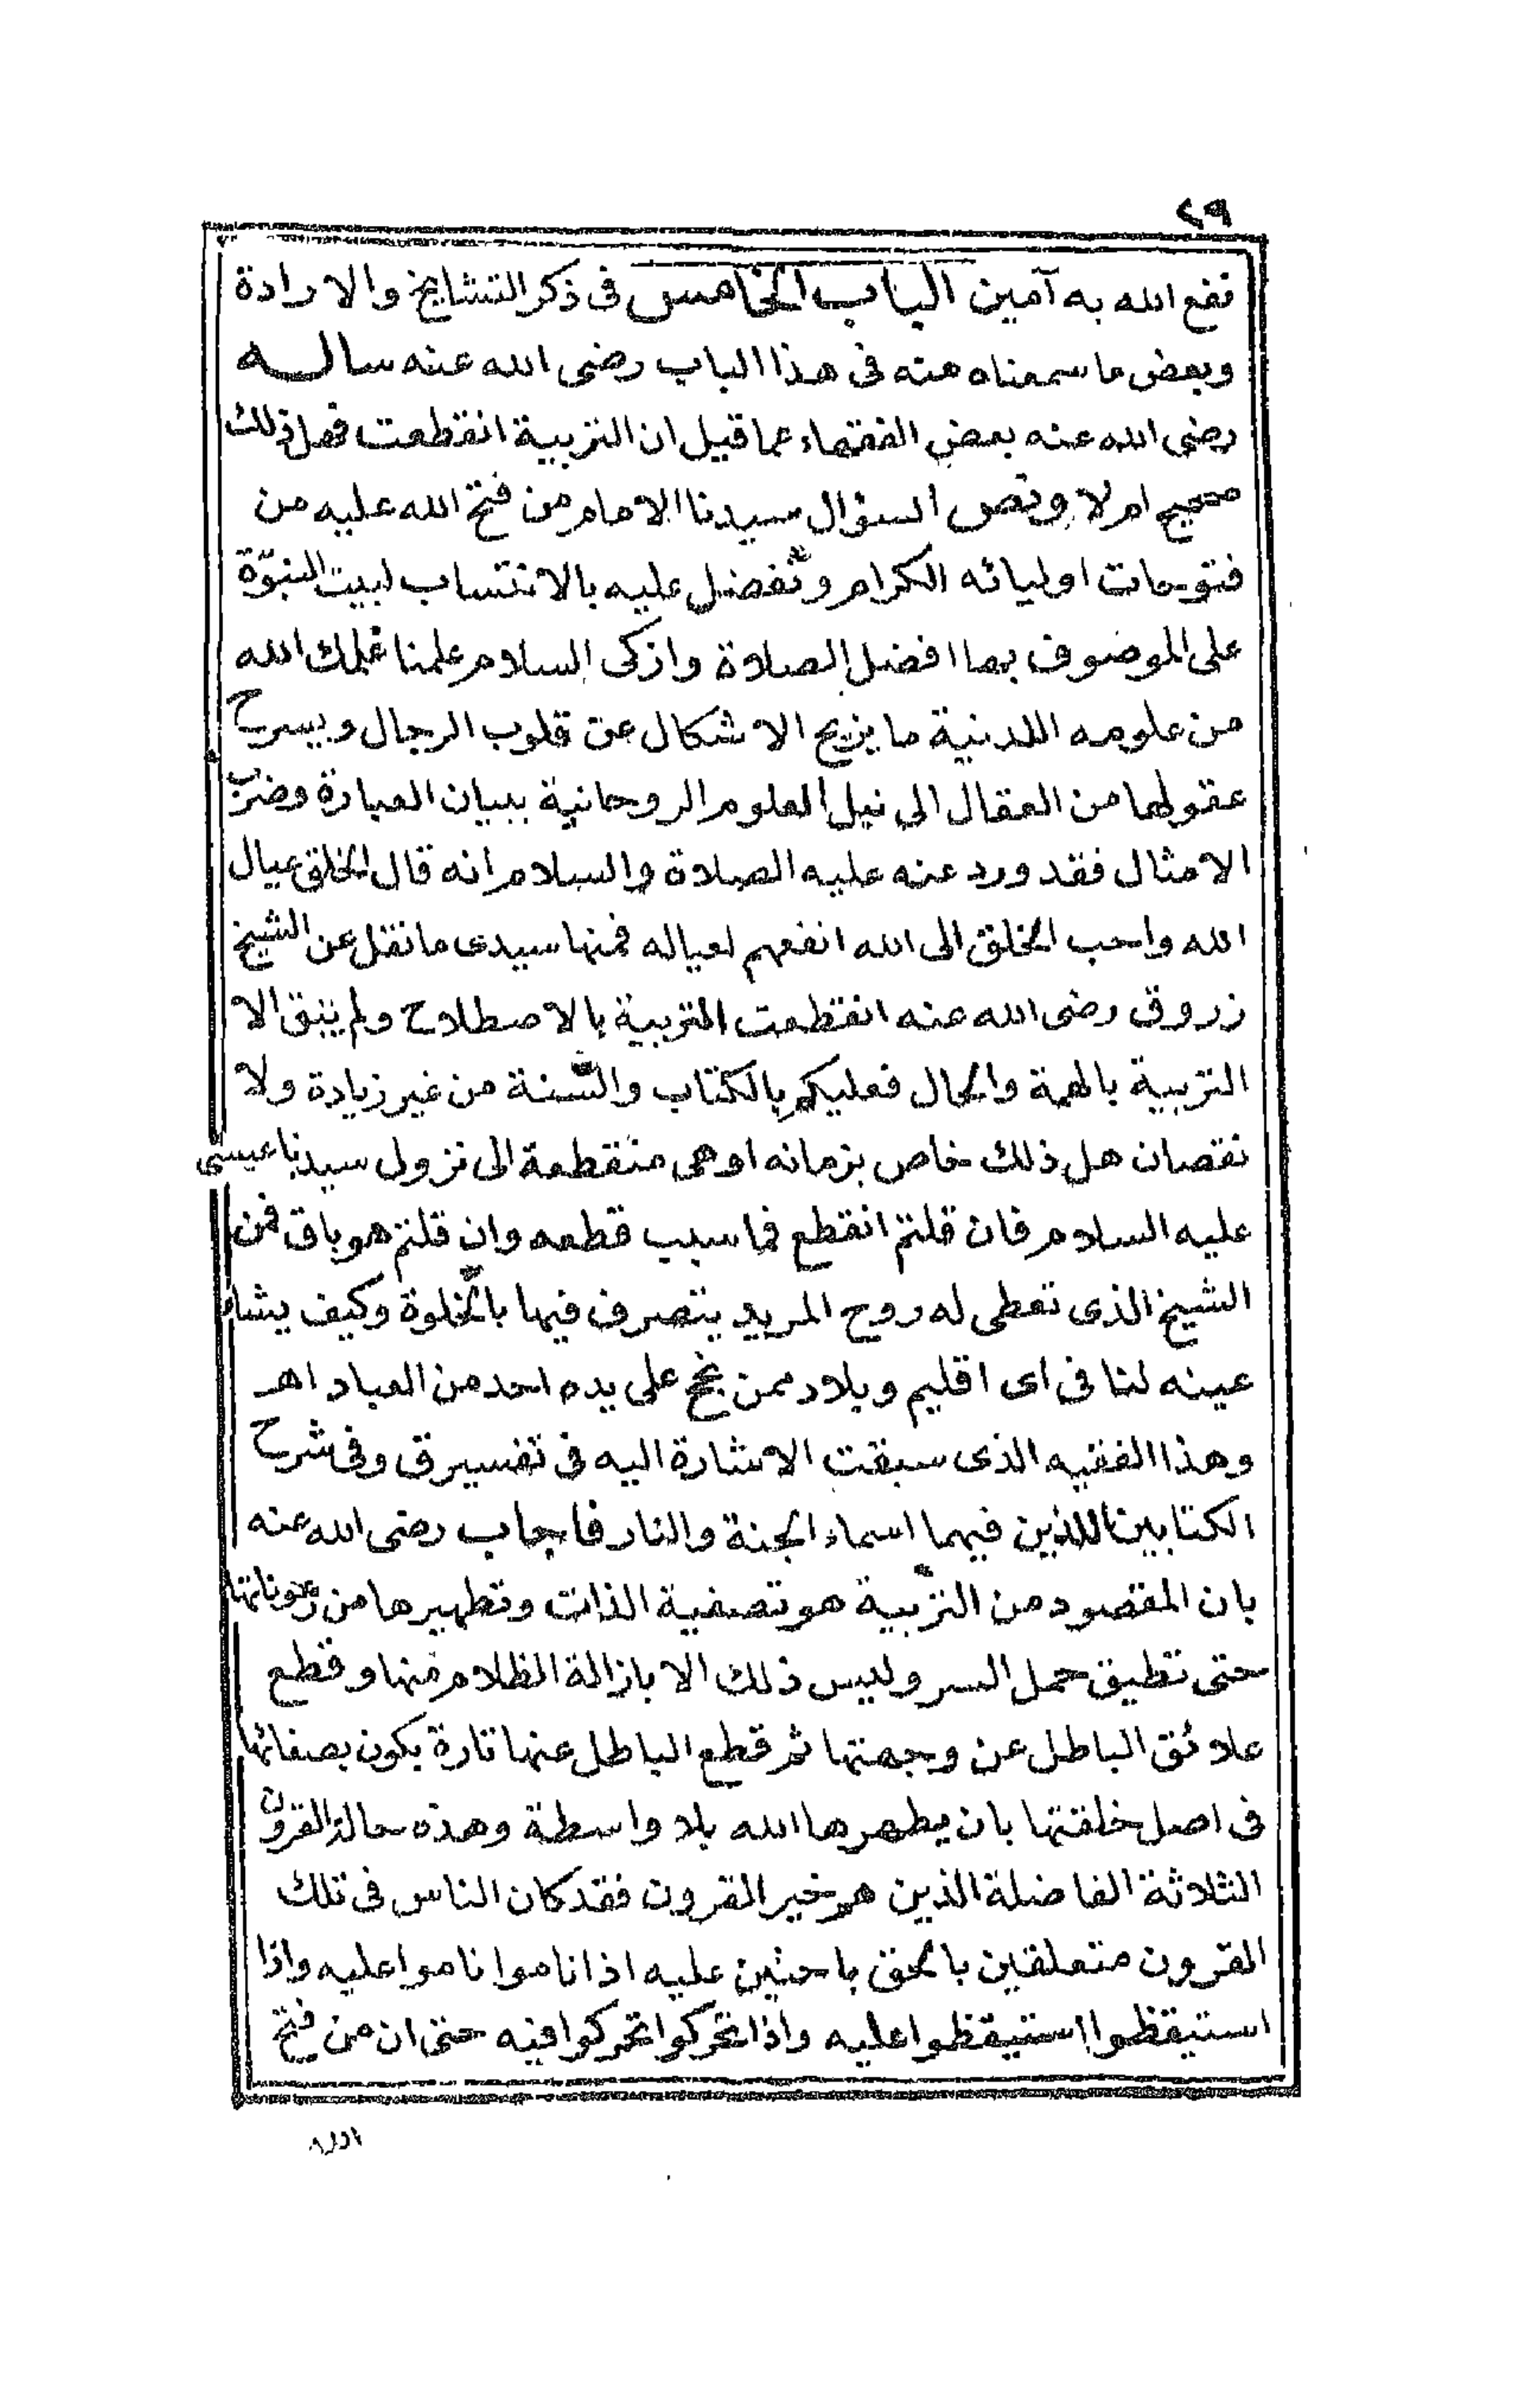 ٢٩
نفع الله به آمين الباب الخامس في ذكر التشايخ والارادة
وبعض ما سمعناه منه في هذا الباب رضى الله عنه ساله
رضى الله عنه بعض الفقهاء عما قيل ان التربية انقطعت فهل ذلك
صحيح ام لا ونص السؤال سيدنا الامام من فتح الله عليه من
فتوحات اوليائه الكرام وتفضل عليه بالانتساب لبيت النبوّة
على الموصوف بها افضل الصلاة وازكى السلام علمنا مما علمك الله
من علومه اللدنية ما يزيح الاشكال عن قلوب الرجال ويسرح
عقولهما من العقال الى نيل العلوم الروحانية ببيان العبارة وضرب
الامثال فقد ورد عنه عليه الصلاة والسلام انه قال الخلق عيال
الله واحب الخلق الى الله انفعهم لعياله فمنها سيدى ما نقل عن الشيخ
زروق رضى الله عنه انقطعت التربية بالاصطلاح ولم يبق الا
التربية بالهمة والحال فعليكم بالكتاب والسنة من غير زيادة ولا
نقصان هل ذلك خاص بزمانه او هى منقطعة الى نزول سيدنا عيسى
عليه السلام فان قلتم انقطع فما سبب قطعه وان قلتم هو باق فمن
الشيخ الذى تعطى له روح المريد يتصرف فيها بالخلوة وكيف يشاء
عينه لنا فى اى اقليم وبلاد ممن نجح على يده احد من العباد اهـ
وهذا الفقيه الذى سبقت الاشارة اليه فى تفسير ق وفى شرح
الكتابين اللذين فيهما اسماء الجنة والنار فاجاب رضى الله عنه
بان المقصود من التربية هو تصفية الذات وتطهيرها من رعوناتها
حتى تطيق حمل السر وليس ذلك الا بازالة الظلام منها وقطع
علائق الباطل عن وجهتها ثم قطع الباطل عنها تارة يكون بصفائها
فى اصل خلقتها بان يطهرها الله بلا واسطة وهذه حالة القرون
الثلاثة الفاضلة الذين هم خير القرون فقد كان الناس فى تلك
القرون متعلقين بالحق باحثين عليه اذا ناموا ناموا عليه واذا
استيقظوا استيقظوا عليه واذا تحركوا تحركوا فيه حتى ان من فتح